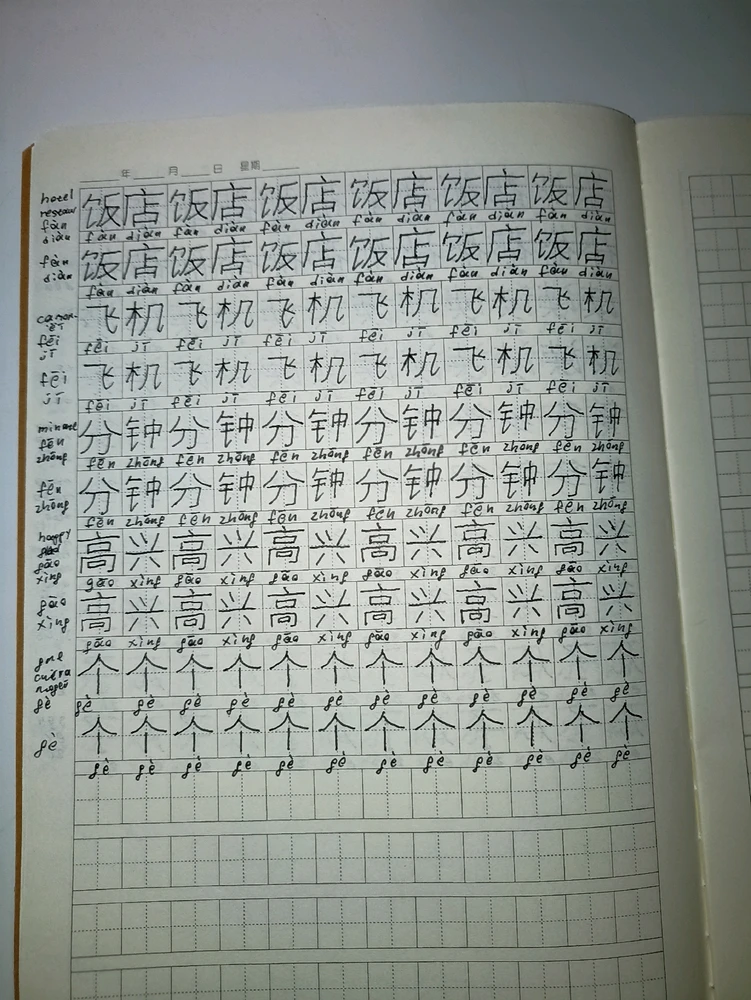 年 月 日 星期
hotel 饭店饭店饭店饭店饭店饭店
fàn diàn fàn diàn fàn diàn fàn diàn fàn diàn fàn diàn fàn diàn
fàn diàn 饭店饭店饭店饭店饭店饭店
fàn diàn fàn diàn fàn diàn fàn diàn fàn diàn fàn diàn
fēi jī 飞机飞机飞机飞机飞机飞机
fēi jī fēi jī fēi jī fēi jī fēi jī fēi jī
fēi jī 飞机飞机飞机飞机飞机飞机
fēi jī fēi jī fēi jī fēi jī fēi jī fēi jī
fēn zhōng 分钟分钟分钟分钟分钟分钟
fēn zhōng fēn zhōng fēn zhōng fēn zhōng fēn zhōng fēn zhōng
fēn zhōng 分钟分钟分钟分钟分钟分钟
fēn zhōng fēn zhōng fēn zhōng fēn zhōng fēn zhōng fēn zhōng
happy gāo xìng 高兴高兴高兴高兴高兴高兴
gāo xìng gāo xìng gāo xìng gāo xìng gāo xìng gāo xìng
gāo xìng 高兴高兴高兴高兴高兴高兴
gāo xìng gāo xìng gāo xìng gāo xìng gāo xìng gāo xìng
gè 个个个个个个个个个个个个
gè gè gè gè gè gè gè gè gè gè gè gè
gè 个个个个个个个个个个个个
gè gè gè gè gè gè gè gè gè gè gè gè